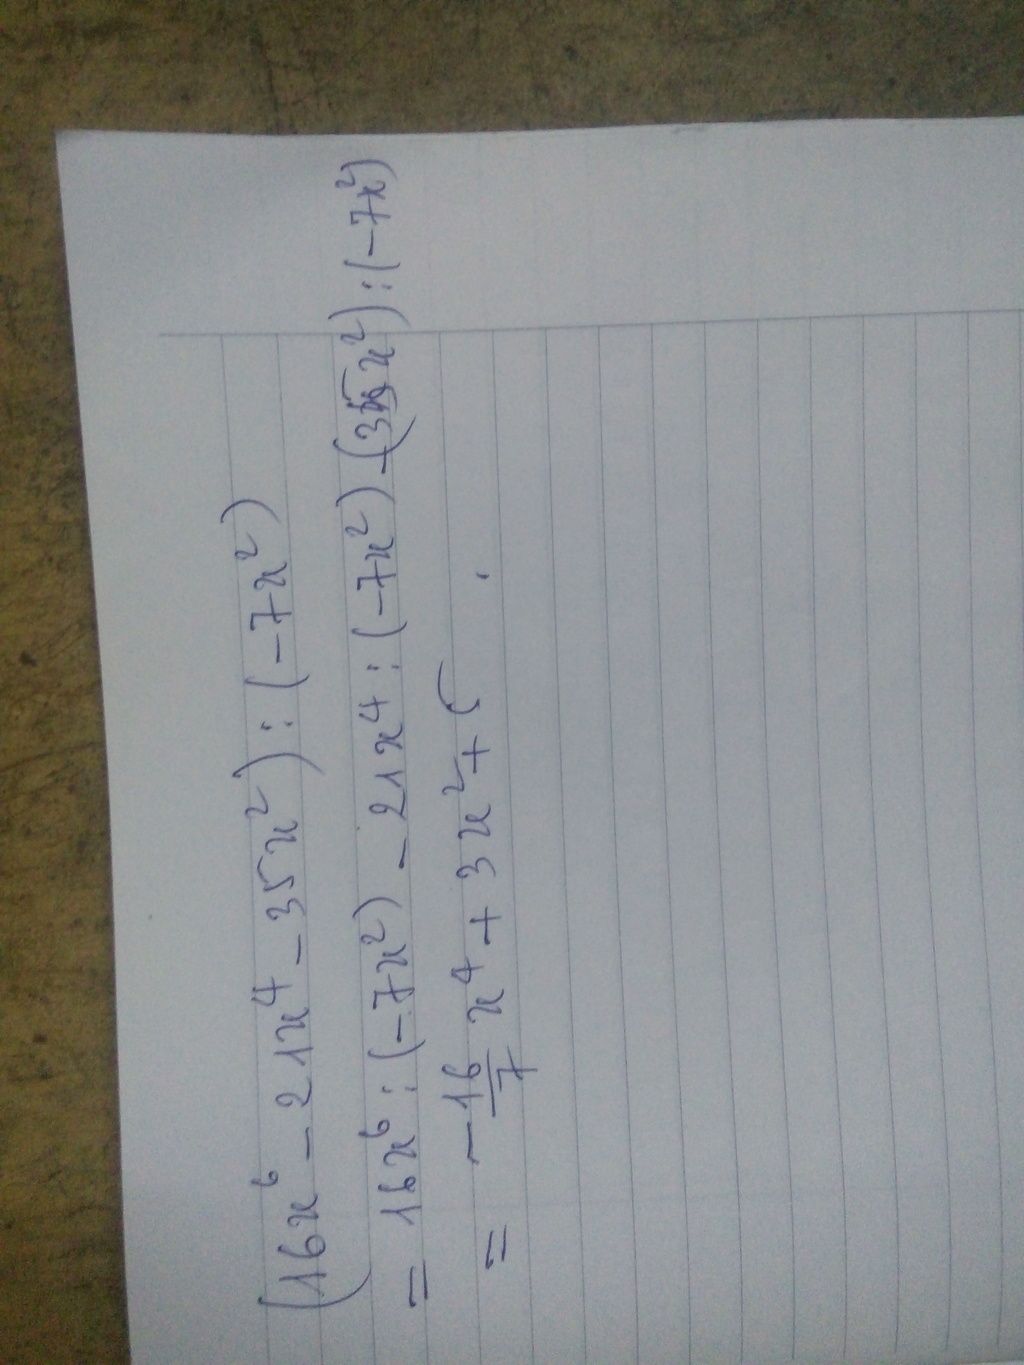 (16x⁶ - 21x⁴ - 35x²) : (-7x²)
= 16x⁶ : (-7x²) - 21x⁴ : (-7x²) - (35x²) : (-7x²)
= -16/7 x⁴ + 3x² + 5